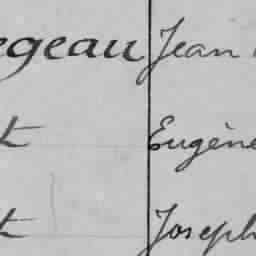 egeau Jean
t Eugène
t Joseph